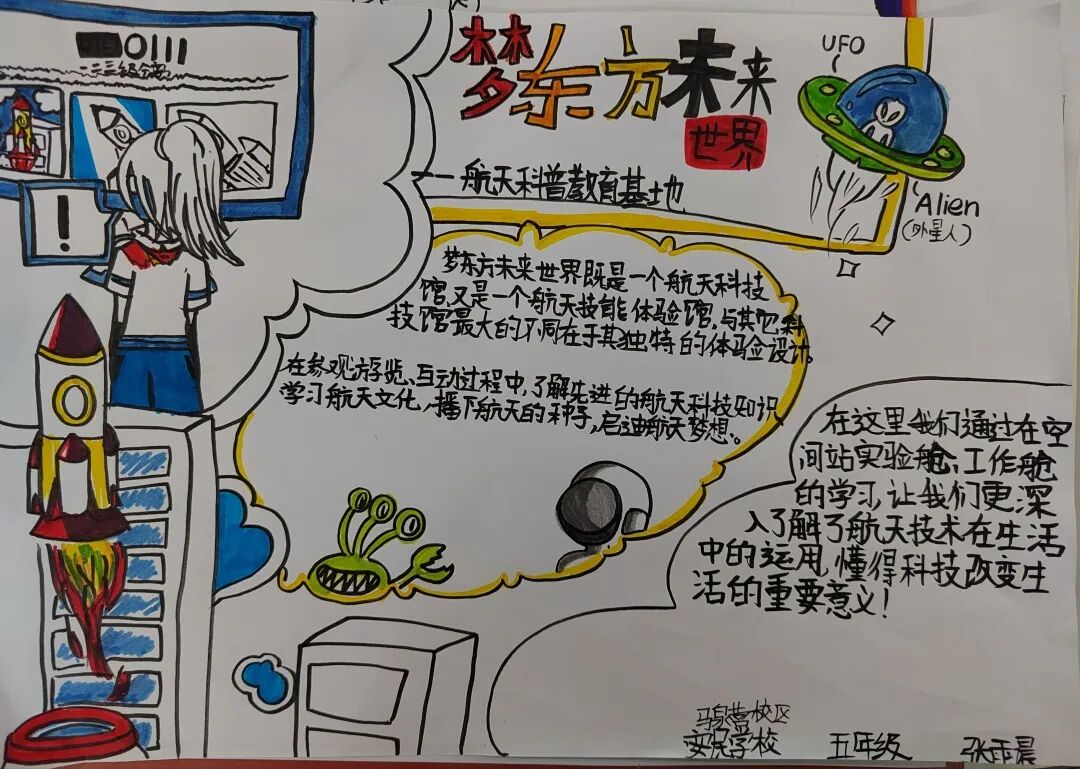 0111
梦东方未来
世界
——航天科普教育基地
UFO
Alien
(外星人)
!
梦东方未来世界既是一个航天科技
馆,又是一个航天技能体验馆,与其它科
技馆最大的不同在于其独特的体验设计。
在参观游览、互动过程中,了解先进的航天科技知识
学习航天文化,播下航天的种子,启迪航天梦想。
在这里我们通过在空
间站实验舱、工作舱
的学习,让我们更深
入了解了航天技术在生活
中的运用,懂得科技改变生
活的重要意义!
校区
学校
五年级
张雨晨